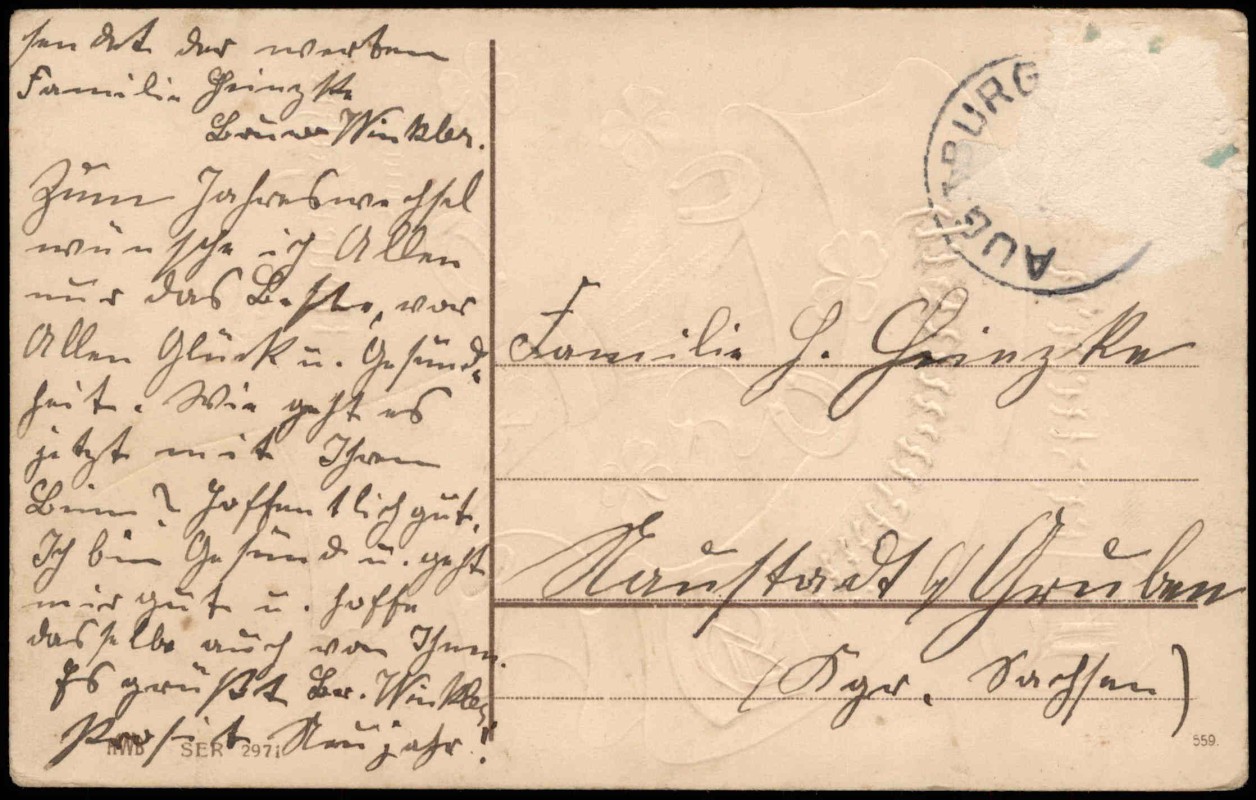 sendet der werten
Familie Heinzke
Bruno Winkler.
Zum Jahreswechsel
wünsche ich Allen
nur das Beste, vor
Allen Glück u. Gesund-
heit. Wie geht es
jetzt mit Ihrem
Bein? Hoffentlich gut.
Ich bin Gesund u. geht
mir gut u. hoffe
dasselbe auch von Ihnen.
Es grüßt Br. Winkler
Prosit Neujahr!
HWB SER 2971
AUGSBURG
Familie H. Heinzke
Naustadt Gruben
(Kgr. Sachsen)
559.